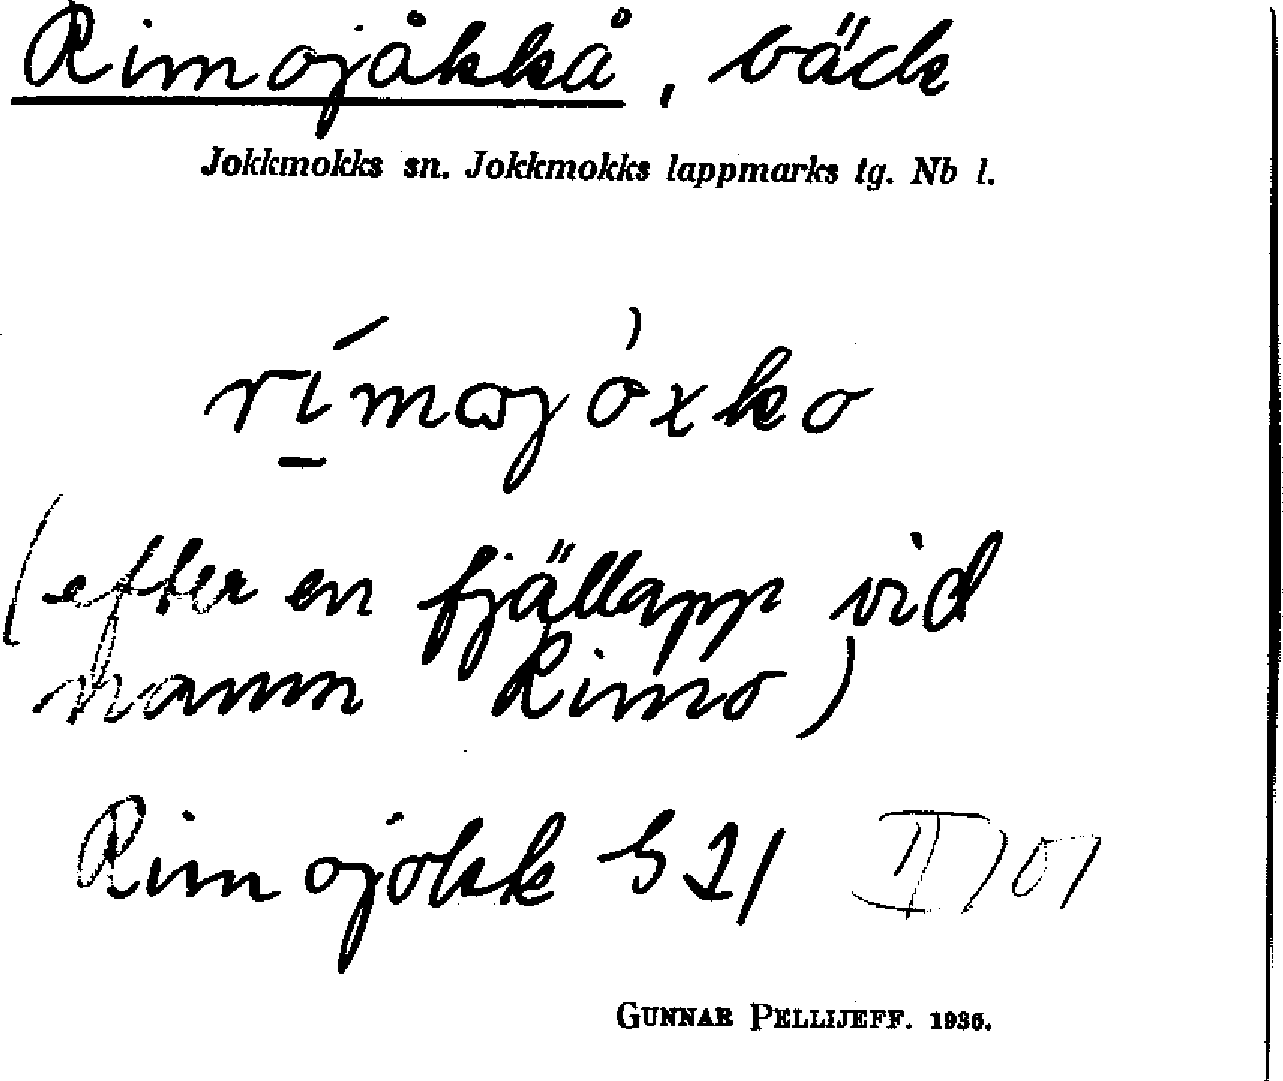 Rimojåkkå, bäck
Jokkmokks sn. Jokkmokks lappmarks tg. Nb l.
rímojòxko
(efter en fjällapp vid
namn Rimo)
Rimojokk S21
GUNNAR PELLIJEFF. 1936.